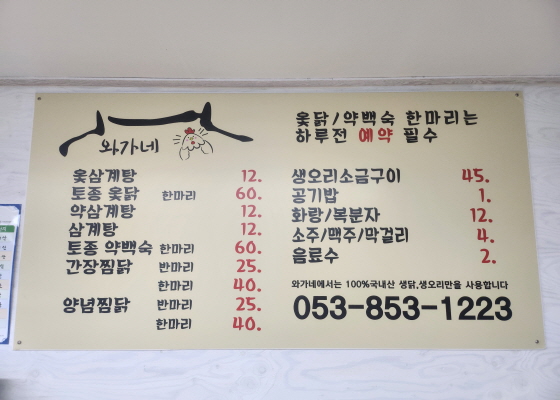 와가네
옻닭/약백숙 한마리는
하루전 예약 필수
옻삼계탕 12.
토종 옻닭 한마리 60.
약삼계탕 12.
삼계탕 12.
토종 약백숙 한마리 60.
간장찜닭 반마리 25.
한마리 40.
양념찜닭 반마리 25.
한마리 40.
생오리소금구이 45.
공기밥 1.
화랑/복분자 12.
소주/맥주/막걸리 4.
음료수 2.
와가네에서는 100%국내산 생닭,생오리만을 사용합니다
053-853-1223